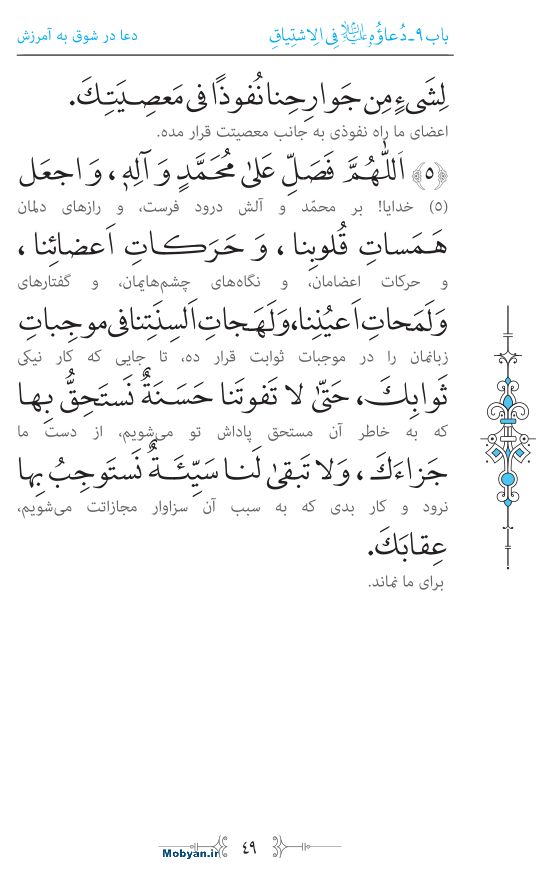 باب ۹ـ دُعاؤُهُ علیه‌السلام فِی الِاشْتِیاقِ
دعا در شوق به آمرزش
لِشَیءٍ مِن جَوارِحِنا نُفوذًا فی مَعصِیَتِکَ.
اعضای ما راه نفوذی به جانب معصیتت قرار مده.
﴿۵﴾ اَللّٰهُمَّ فَصَلِّ عَلیٰ مُحَمَّدٍ وَ آلِهٖ ، وَ اجعَل
(۵) خدایا! بر محمّد و آلش درود فرست، و رازهای دلمان
هَمَساتِ قُلوبِنا ، وَ حَرَکاتِ اَعضائِنا ،
و حرکات اعضامان، و نگاه‌های چشم‌هایمان، و گفتارهای
وَ لَمَحاتِ اَعیُنِنا، وَ لَهَجاتِ اَلسِنَتِنا فی موجِباتِ
زبانمان را در موجبات ثوابت قرار ده، تا جایی که کار نیکی
ثَوابِکَ، حَتّیٰ لا تَفوتَنا حَسَنَةٌ نَستَحِقُّ بِها
که به خاطر آن مستحق پاداش تو می‌شویم، از دست ما
جَزاءَکَ ، وَ لا تَبقیٰ لَنا سَیِّئَةٌ نَستَوجِبُ بِها
نرود و کار بدی که به سبب آن سزاوار مجازاتت می‌شویم،
عِقابَکَ.
برای ما نماند.
۴۹
Mobyan.ir